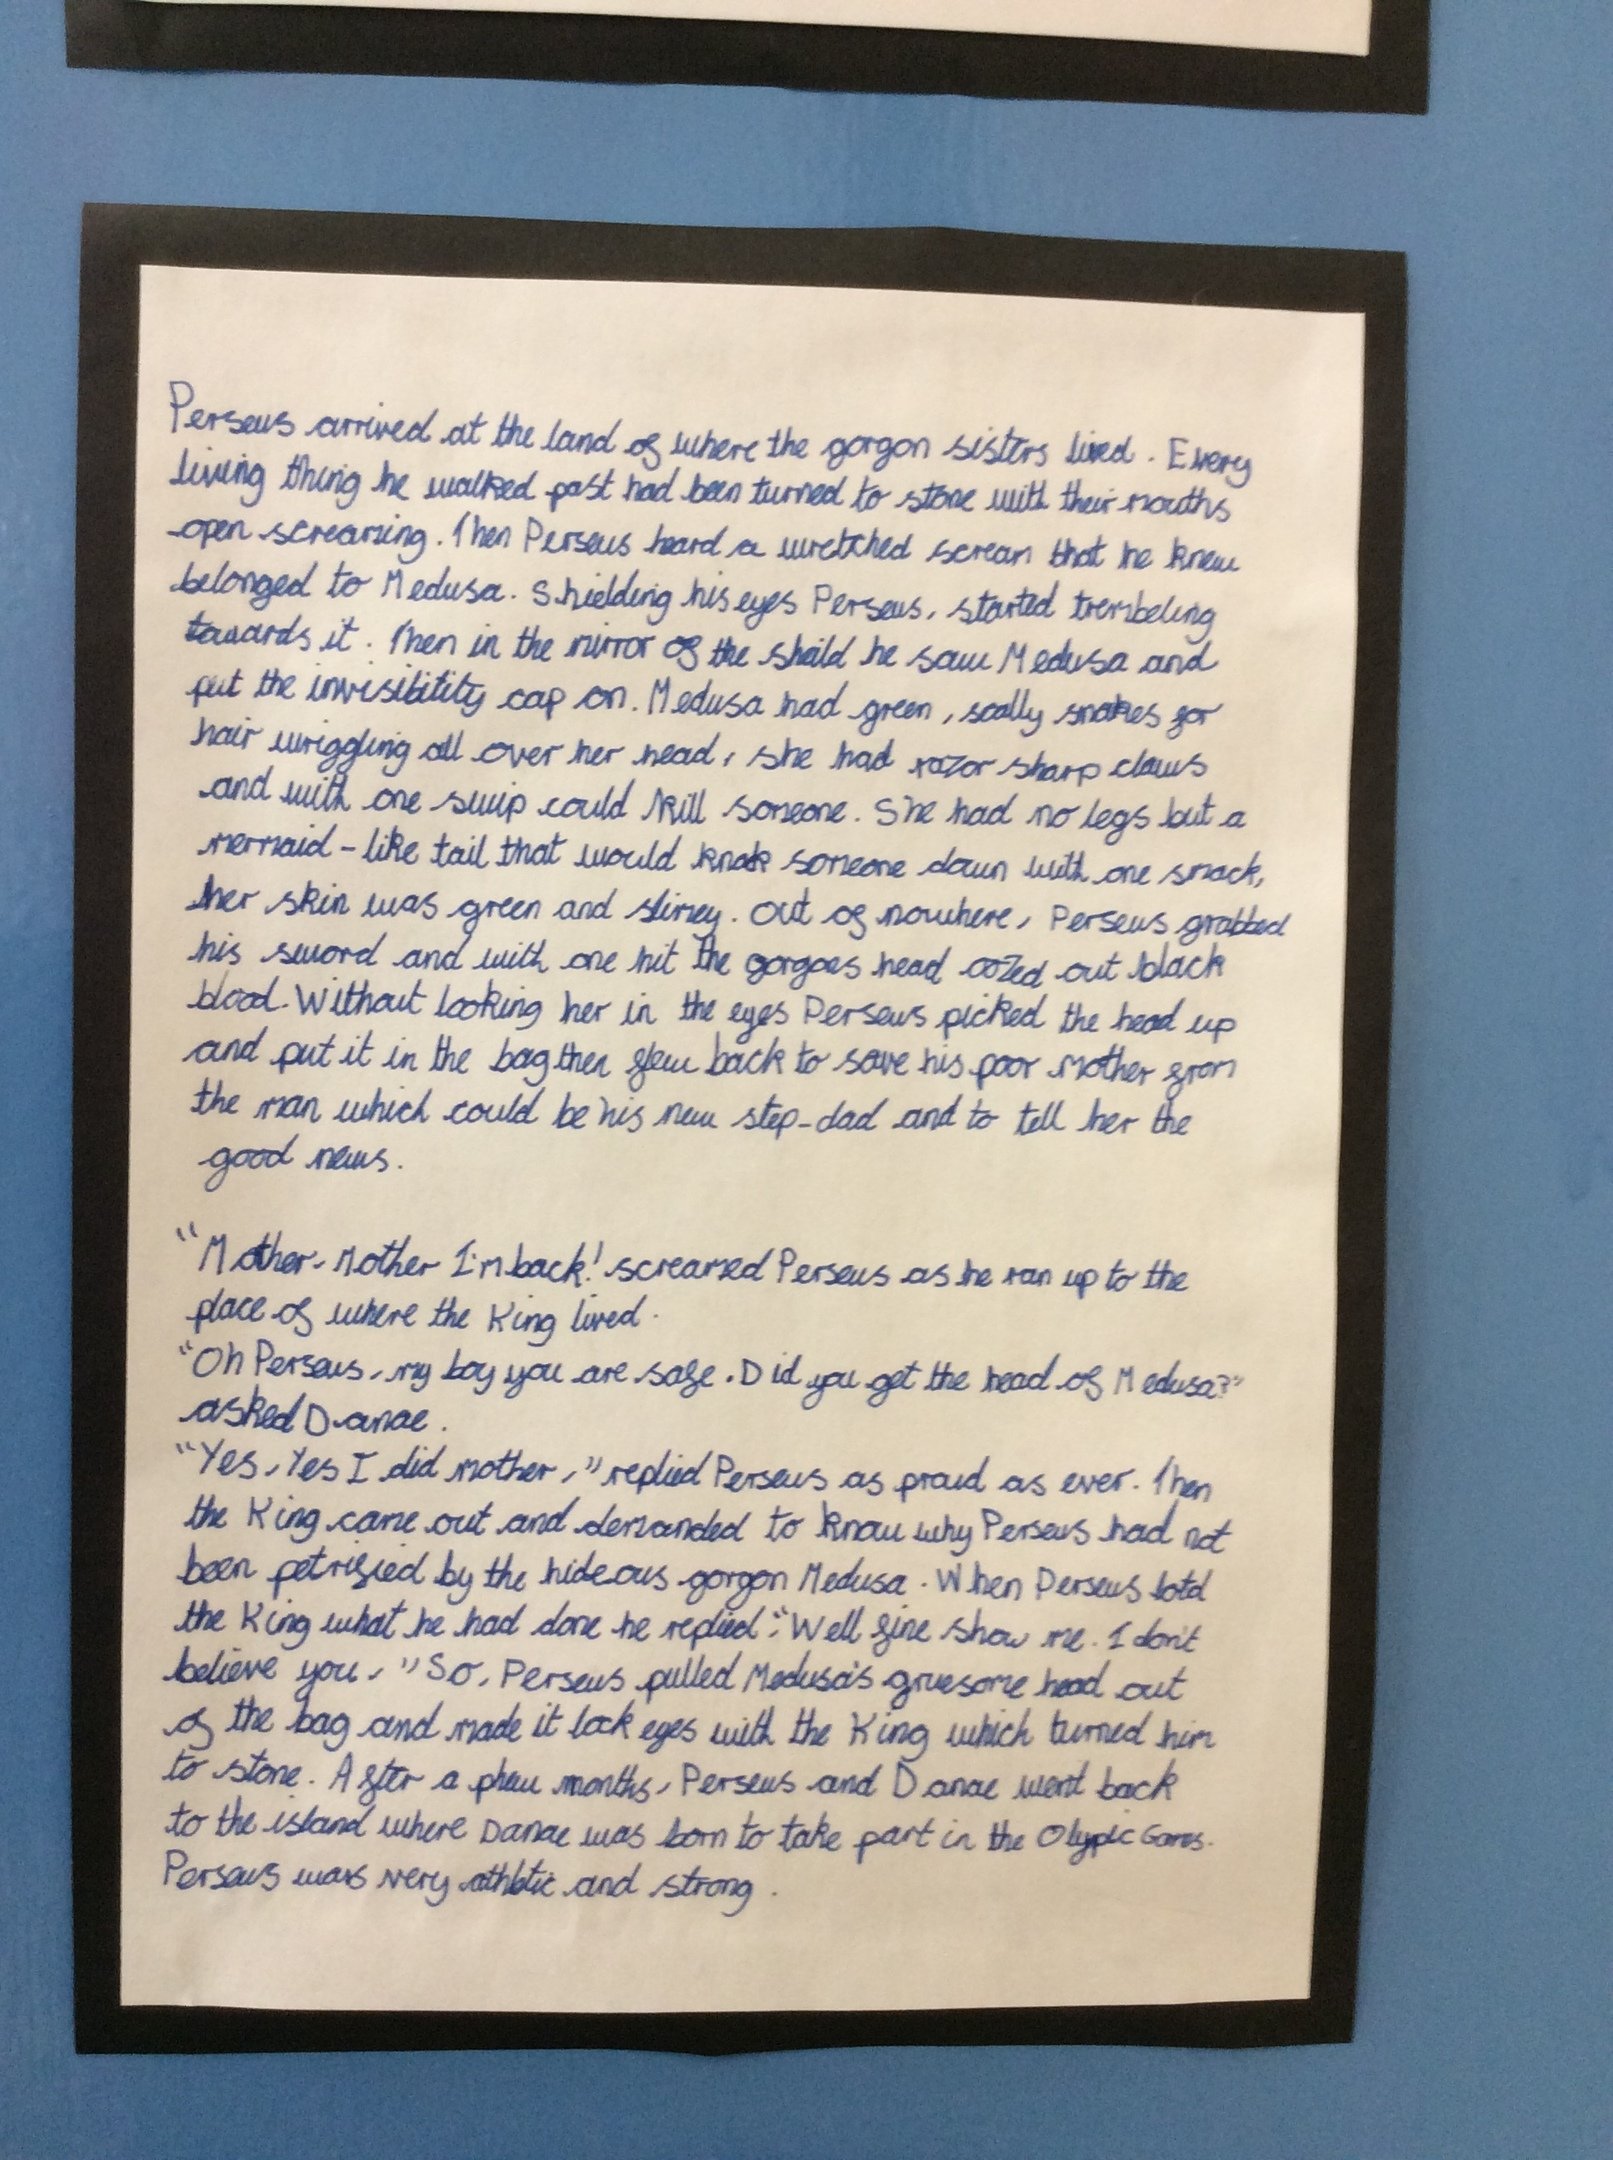 Perseus arrived at the land of where the gorgon sisters lived. Every
living thing he walked past had been turned to stone with their mouths
open screaming. Then Perseus heard a wretched scream that he knew
belonged to Medusa. Shielding his eyes Perseus, started trembeling
towards it. Then in the mirror of the sheild he saw Medusa and
put the invisibitity cap on. Medusa had green, scally snakes for
hair wriggling all over her head, she had razor sharp claws
and with one swip could kill someone. She had no legs but a
mermaid-like tail that would knok someone down with one smack,
her skin was green and slimey. Out of nowhere, Perseus grabbed
his sword and with one hit the gorgoes head oozed out black
blood. Without looking her in the eyes Perseus picked the head up
and put it in the bag then flew back to save his poor mother from
the man which could be his new step-dad and to tell her the
good news.
"Mother, Mother I'm back! screamed Perseus as he ran up to the
place of where the King lived.
"Oh Perseus, my boy you are safe. Did you get the head of Medusa?"
asked Danae.
"Yes, Yes I did mother," replied Perseus as proud as ever. Then
the King came out and demanded to know why Perseus had not
been petrified by the hideous gorgon Medusa. When Perseus totd
the King what he had done he replied, "Well fine show me. I don't
believe you," So, Perseus pulled Medusa's gruesome head out
of the bag and made it lock eyes with the King which turned him
to stone. After a phew months, Perseus and Danae went back
to the island where Danae was born to take part in the Olypic Games.
Perseus was very athletic and strong.